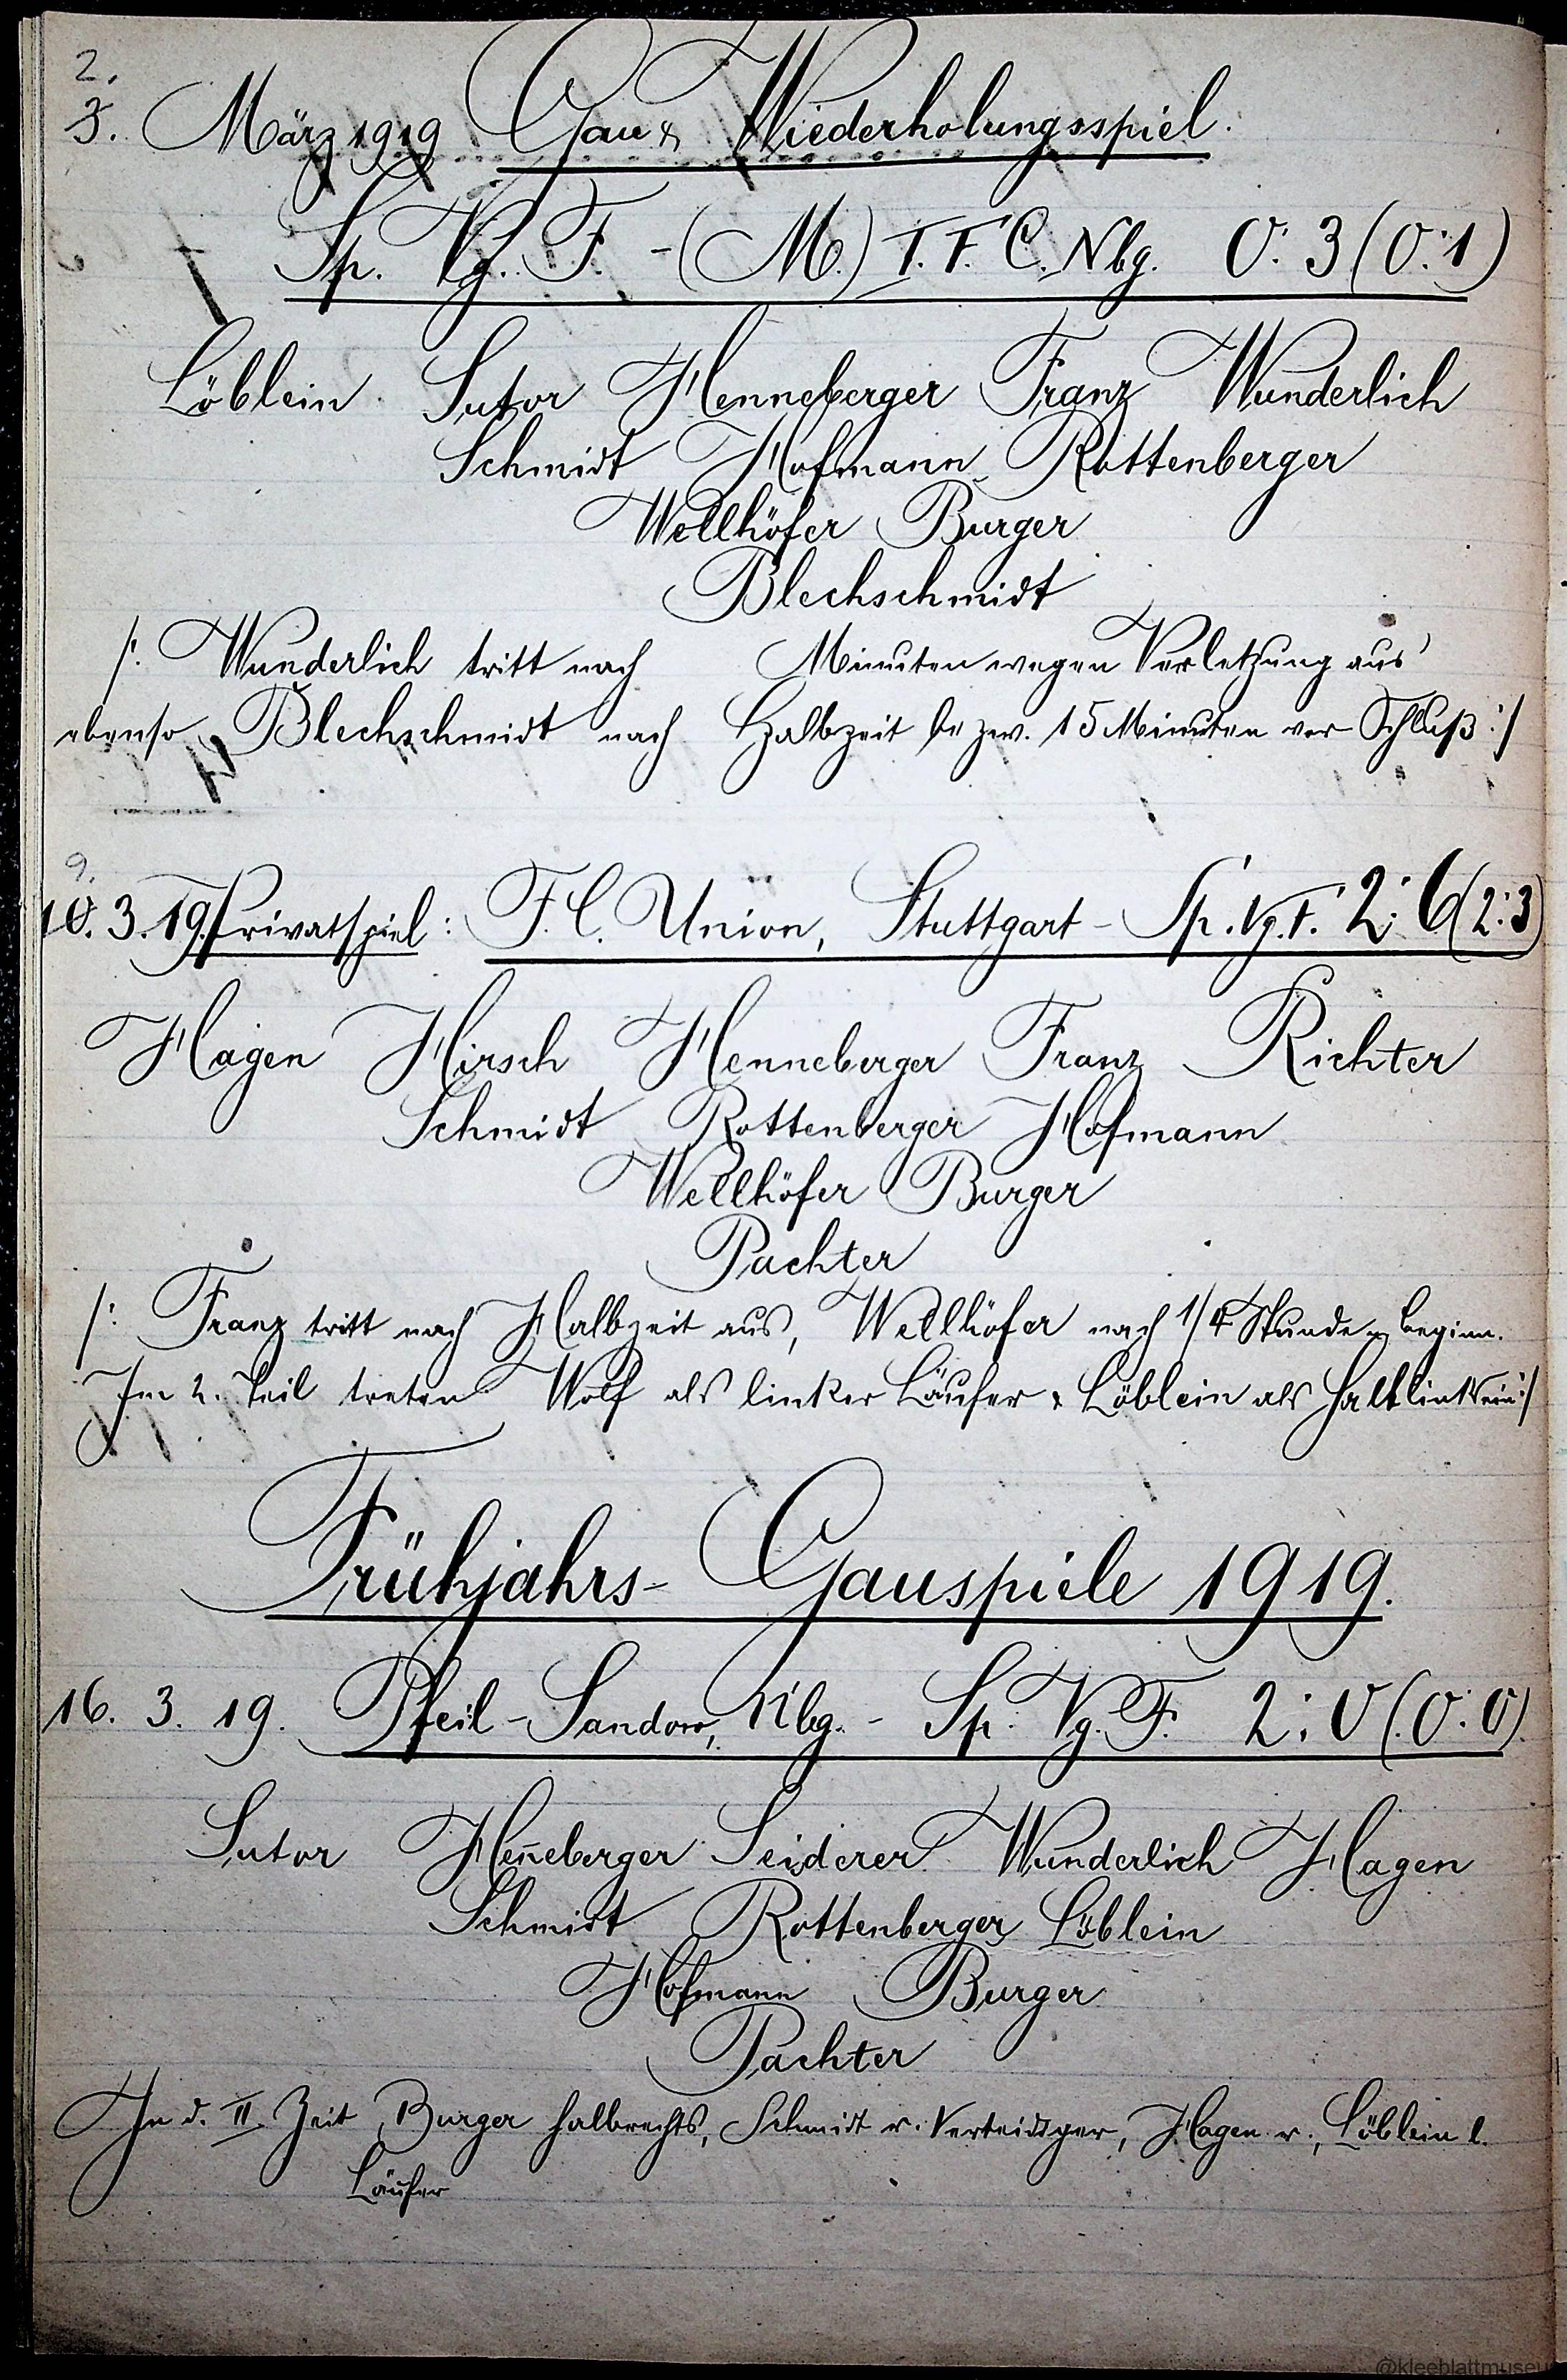 2.
3. März 1919 Gau & Wiederholungsspiel.
Sp. Vg. F. - (M.) I. F. C. Nbg. 0:3 (0:1)
Löblein Sutor Henneberger Franz Wunderlich
Schmidt Hofmann Rottenberger
Wellhöfer Burger
Blechschmidt
/: Wunderlich tritt nach Minuten wegen Verletzung aus
ebenso Blechschmidt nach Halbzeit bezw. 15 Minuten vor Schluß :/
9.
10.3.19. Privatspiel: F. C. Union, Stuttgart - Sp. Vg. F. 2:6 (2:3)
Hagen Hirsch Henneberger Franz Richter
Schmidt Rottenberger Hofmann
Wellhöfer Burger
Pachter
/: Franz tritt nach Halbzeit aus, Wellhöfer nach 1/4 Stunde Beginn.
Im 2. Teil treten Wolf als linker Läufer & Löblein als halblinks ein :/
Frühjahrs-Gauspiele 1919.
16. 3. 19. Pfeil-Sandow, Nbg. - Sp. Vg. F. 2:0 (0:0).
Sutor Hen̄eberger Seiderer Wunderlich Hagen
Schmidt Rottenberger Löblein
Hofmann Burger
Pachter
In d. II. Zeit Burger halbrechts, Schmidt r. Verteidiger, Hagen r., Löblein l.
Läufer
@kleeblattmuseu